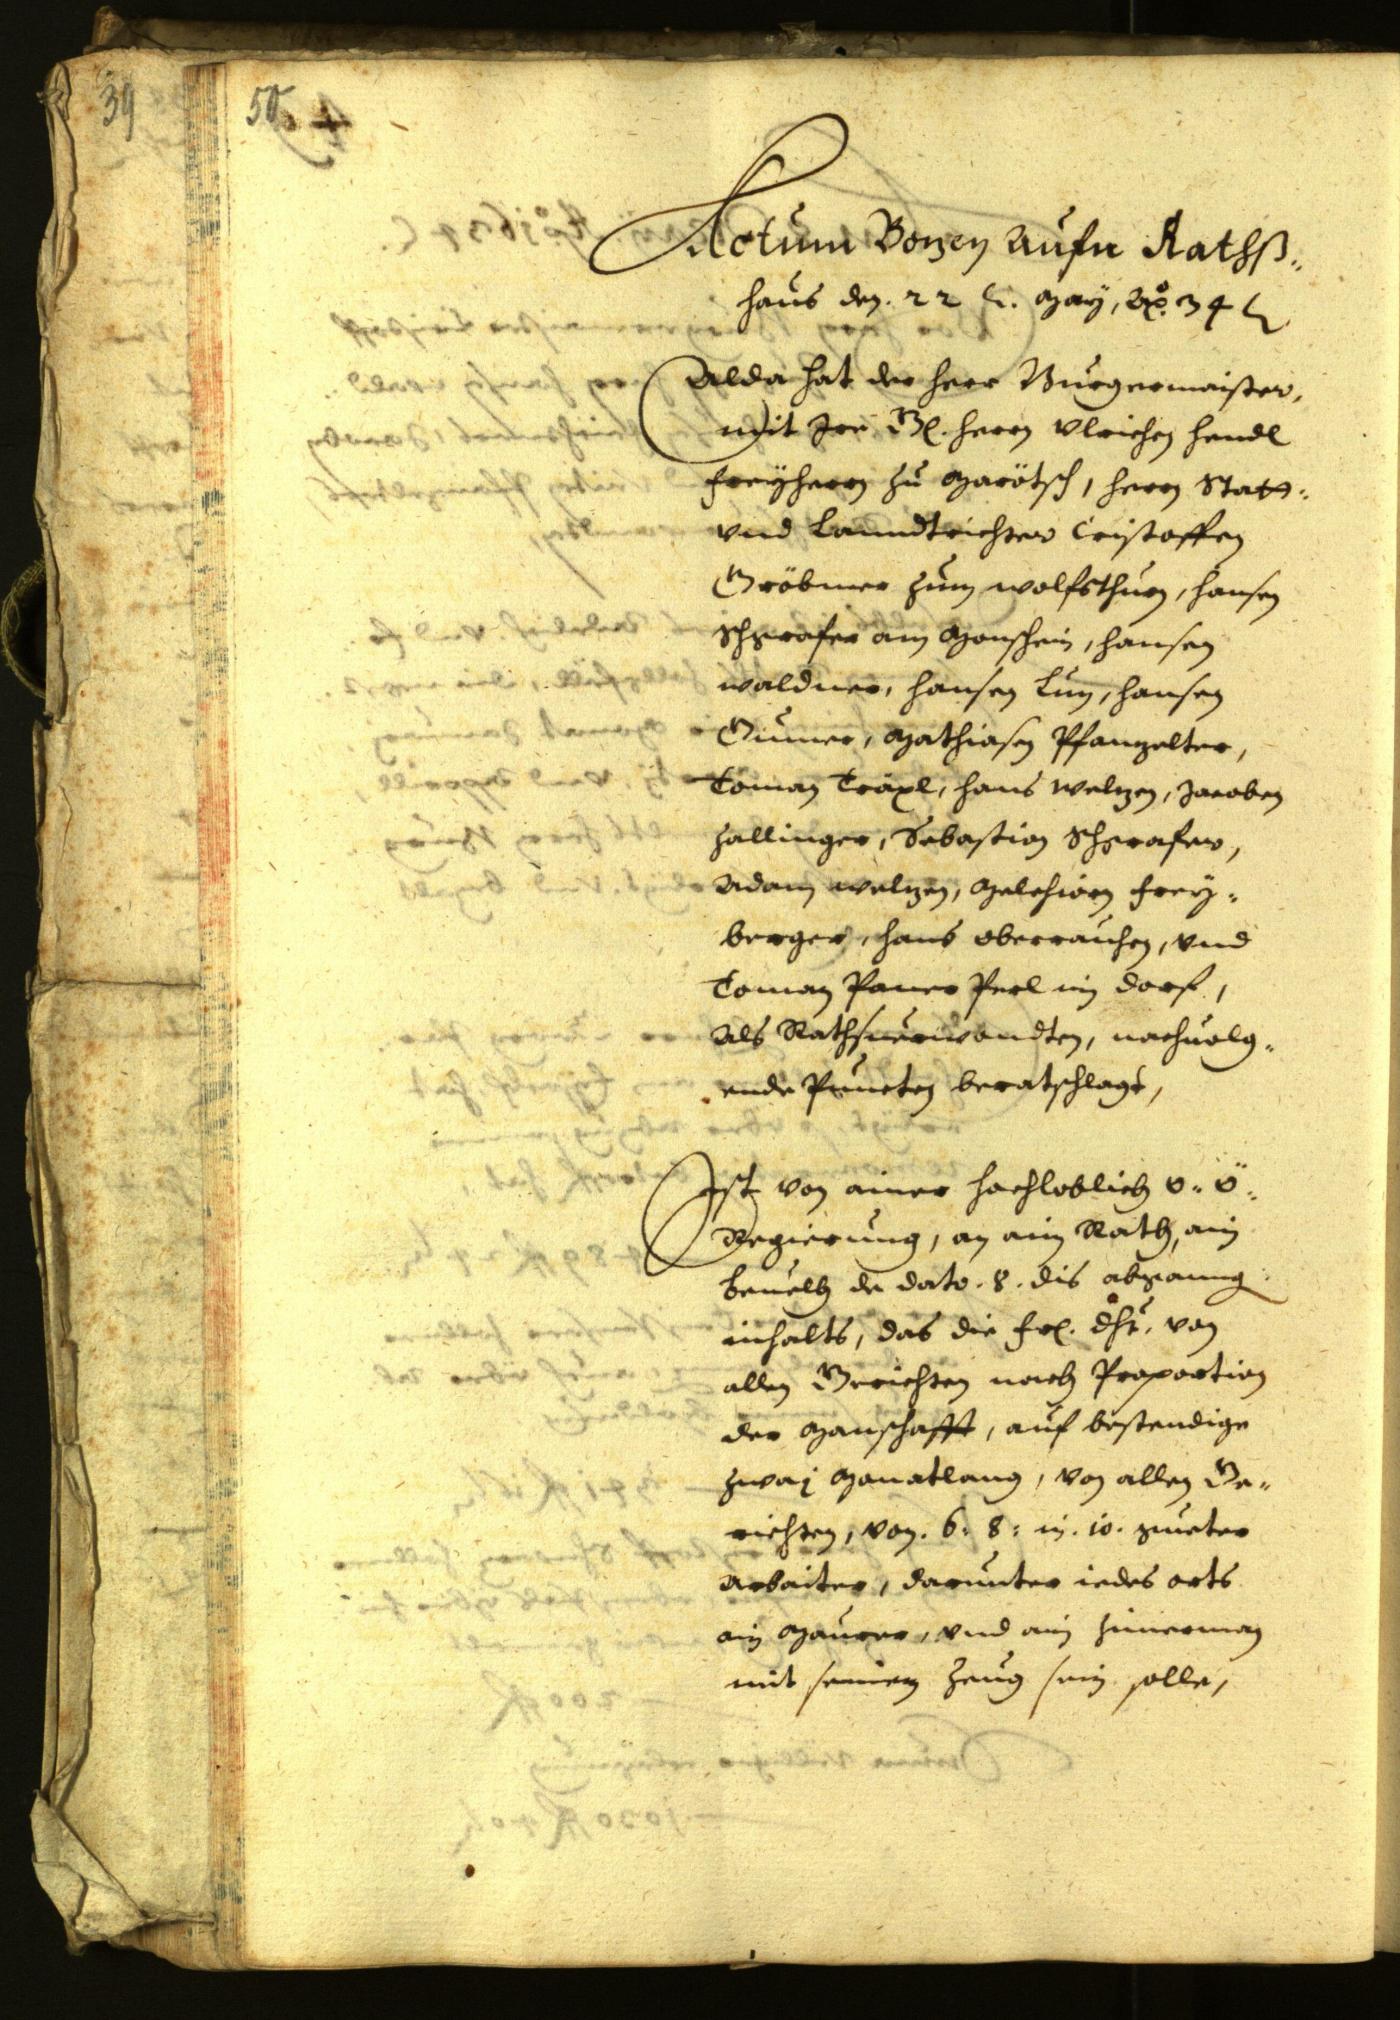 39
50
Actum Bozen Aufn Rathß„
haus den .22 t. May, Aõ. 34 t
Alda hat der herr Burgermaister,
mit Ire Gl. herrn Vlrichen Hendl
Freÿherrn zu Marötsch, herrn Statt„
vnd Lanndtrichter Cristoffen
Gröbmer zum wolfsthurn, hansen
Schgrafer am Manschein, hansen
waldner, hansen Lun, hansen
Gumer, Mathiasen Pfanzelter,
Toman Träxl, hans weltzen, Jacoben
zallinger, Sebastian Schgrafer,
Adam weltzen, Melchiorn Frey„
berger, hans oberrauchen, vnd
Toman Paner Perl im dorf,
Als Rathsuerwandten, nachuolg„
ende Puncten beratschlagt,
Ist von ainer hochloblich o: ö:
Regierung, an ain Rath, ain
beuelch de dato .8. dis abgangn
inhalts, das die frl. dht. von
allen Gerichten nach Proportion
der Manschafft, auf bestendige
zwaj Monatlang, von allen Ge„
richten, von .6. 8: in .10. gueter
Arbaiter, darunter iedes orts
ain Maurer, vnd ain Zimerman
mit seinem Zeug sein solle,